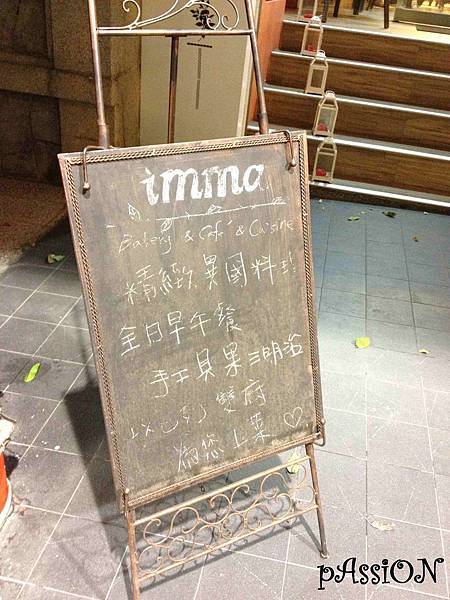 imma
Bakery & Café & Cuisine
精緻異國料理
全日早午餐
手工貝果三明治
以色列雙府
為您上菜♡
pAssiON